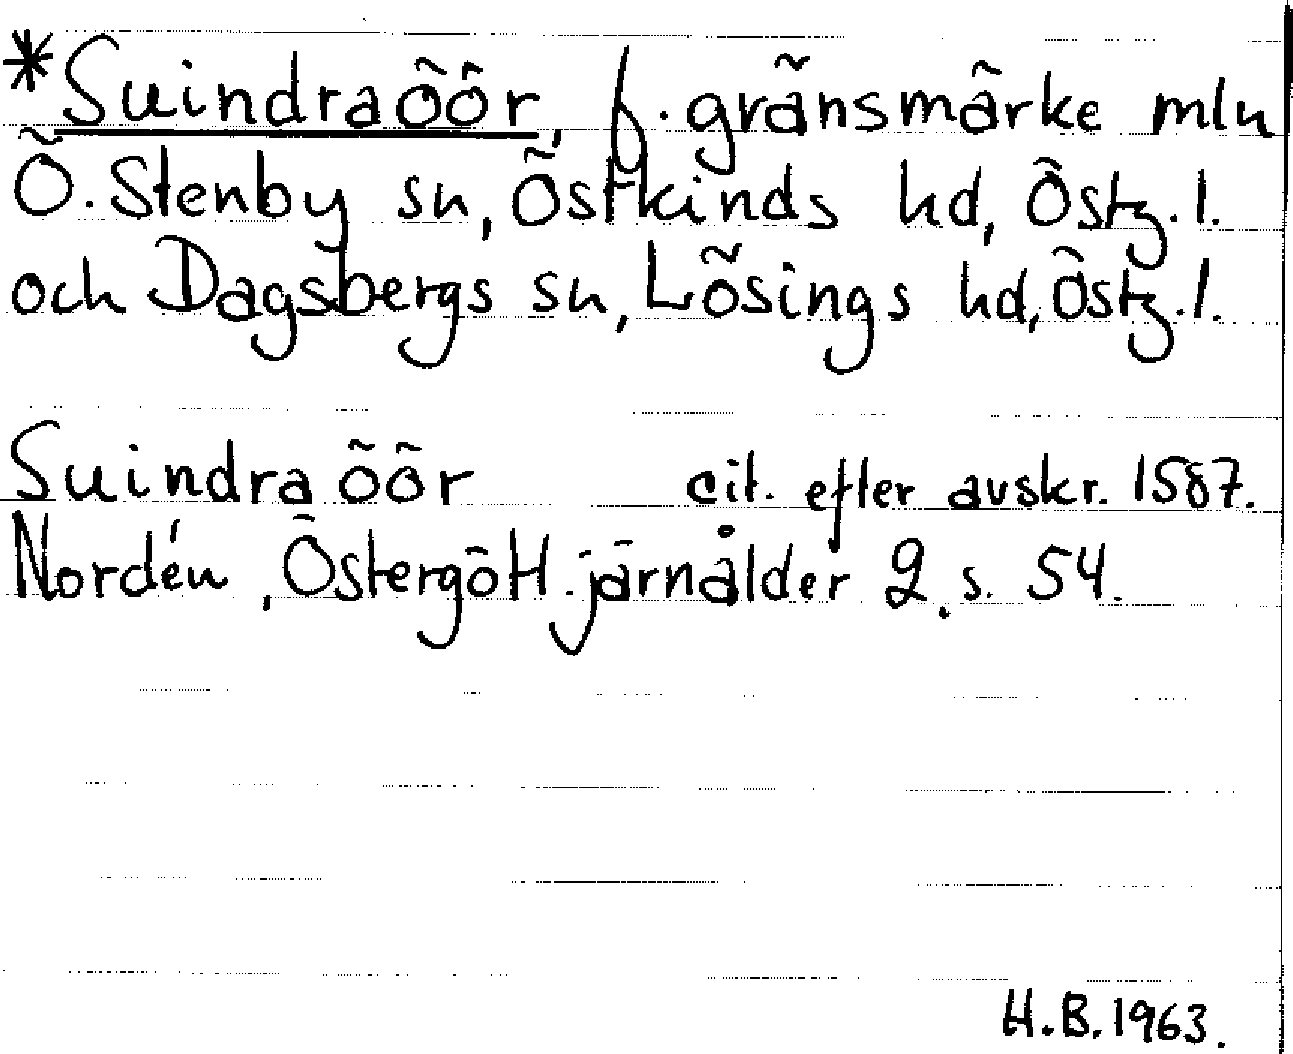 *Suindraöör, f. gränsmärke mln
Ö. Stenby sn, Östkinds hd, Östg. l.
och Dagsbergs sn, Lösings hd, Östg. l.
Suindra öör cit. efter avskr. 1587.
Nordén, Östergötl. järnålder 2, s. 54.
H.B. 1963.